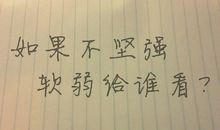 如果不坚强
软弱给谁看？